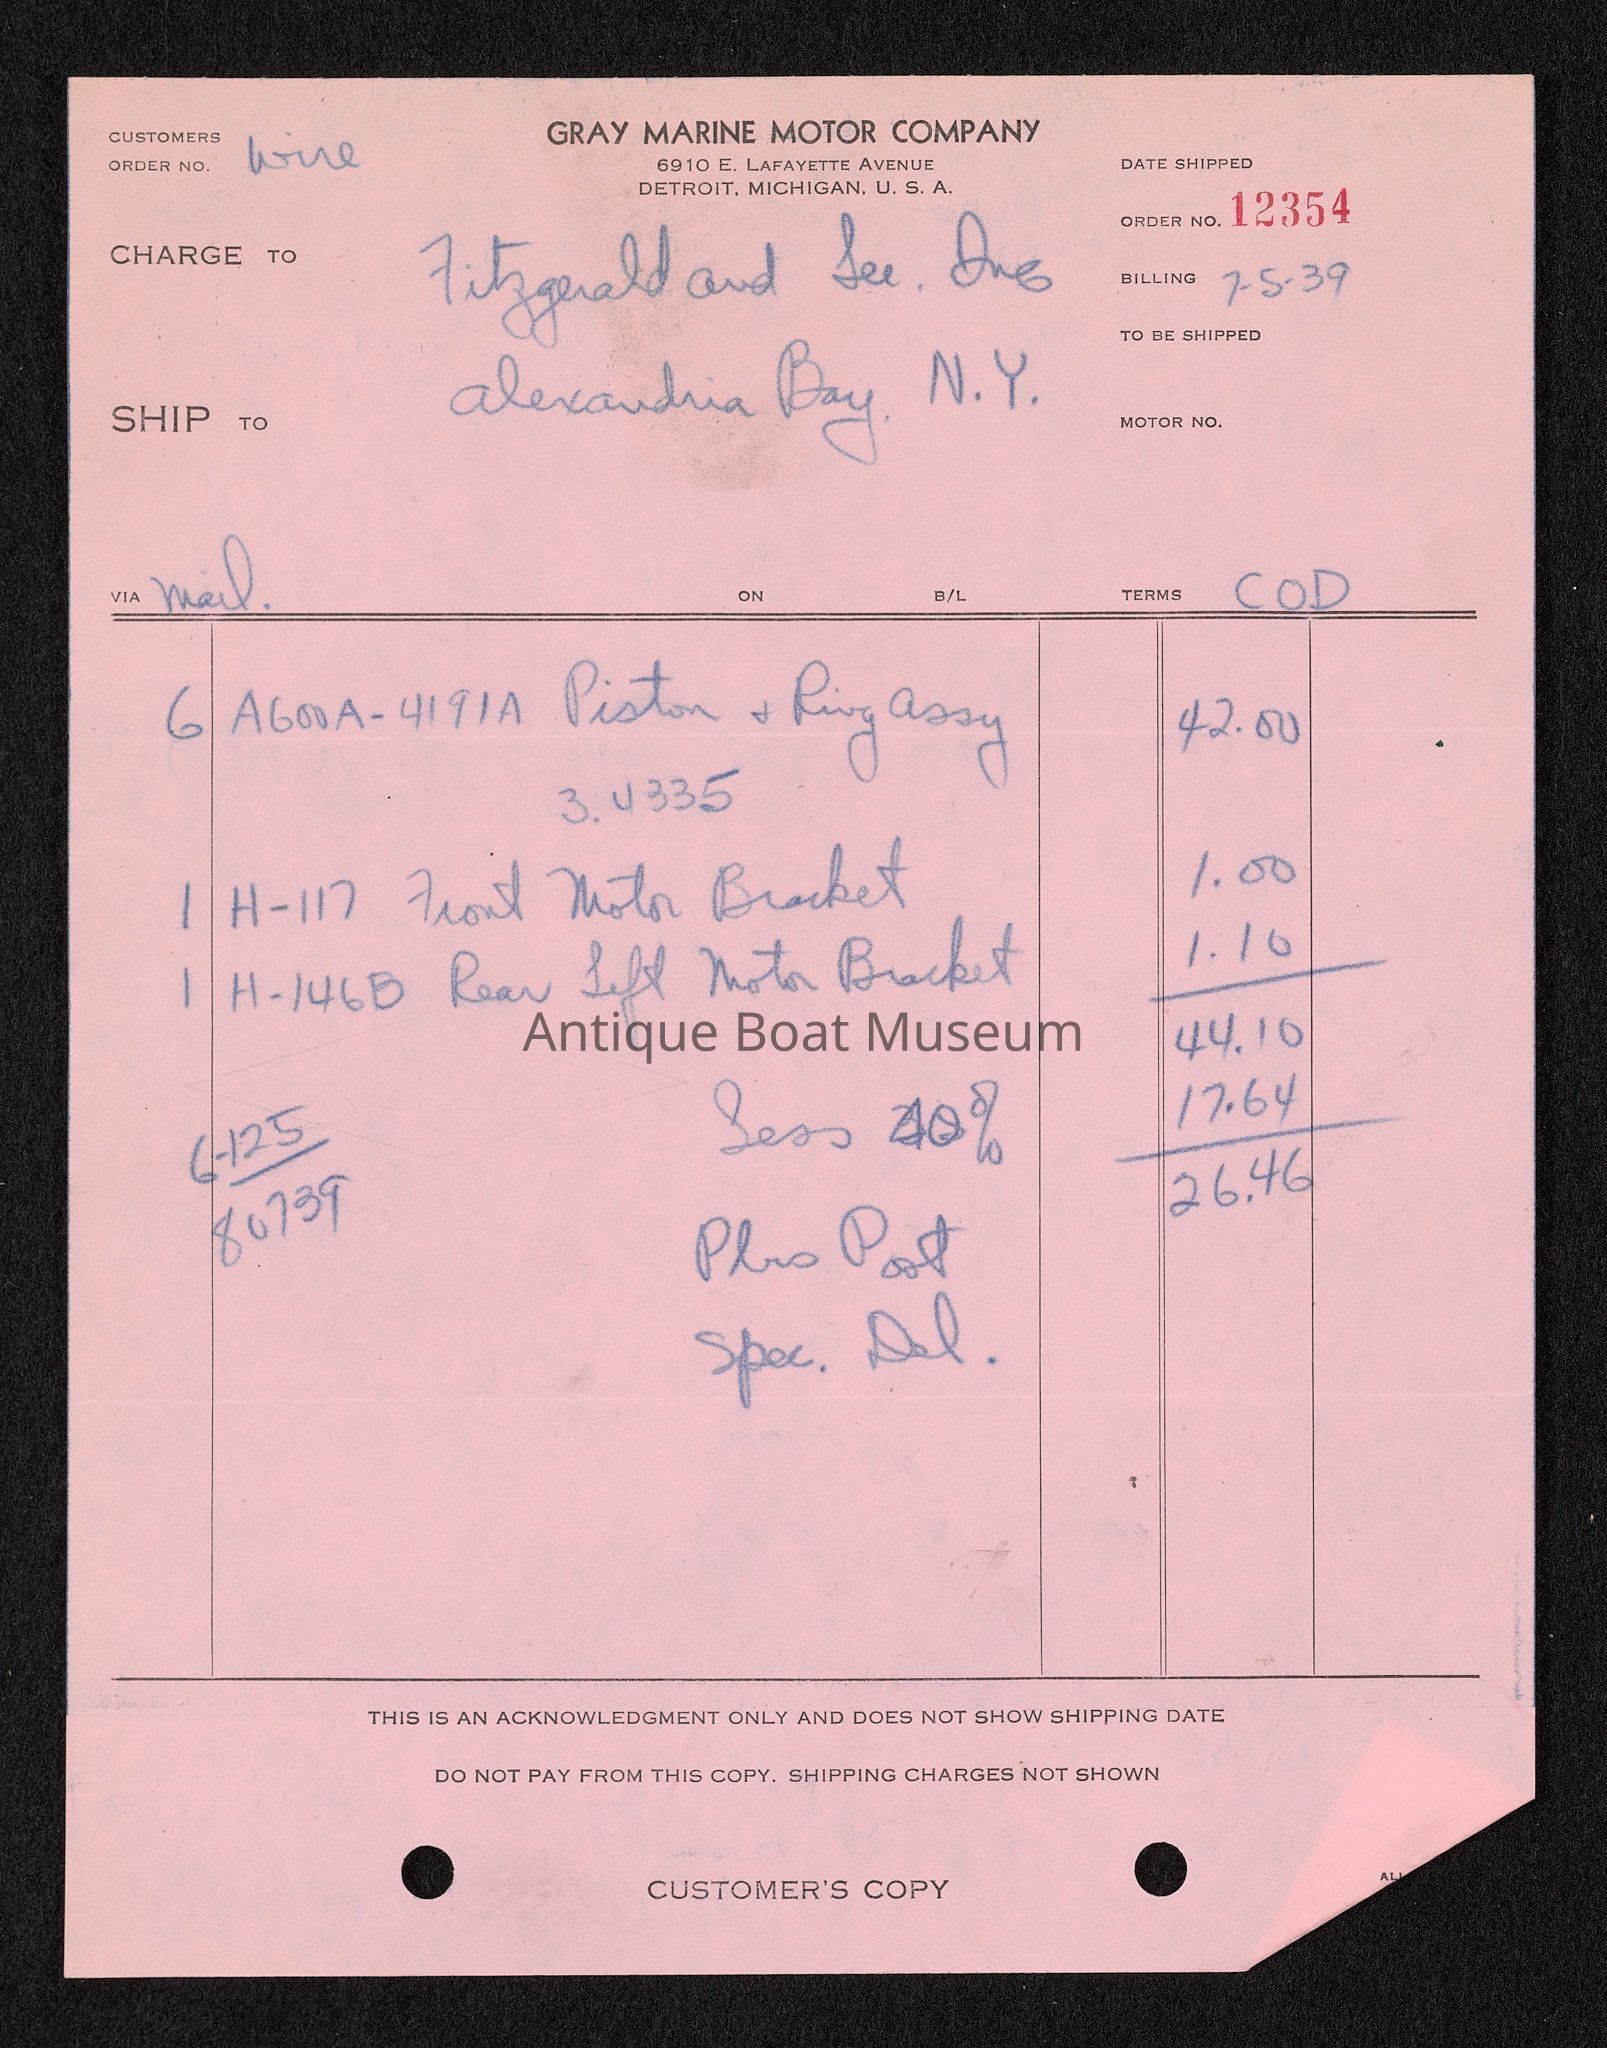 CUSTOMERS
ORDER NO. Wire
GRAY MARINE MOTOR COMPANY
6910 E. LAFAYETTE AVENUE
DETROIT, MICHIGAN, U. S. A.
DATE SHIPPED
ORDER NO. 12354
CHARGE TO Fitzgerald and Lee. Inc
BILLING 7-5-39
TO BE SHIPPED
Alexandria Bay, N.Y.
SHIP TO
MOTOR NO.
VIA Mail. ON B/L TERMS COD
6 A600A-4191A Piston & Ring Assy 42.00
3.4335
1 H-117 Front Motor Bracket 1.00
1 H-146B Rear Left Motor Bracket 1.10
Antique Boat Museum
44.10
Less 40% 17.64
6-125
80739
26.46
Plus Post
Spec. Del.
THIS IS AN ACKNOWLEDGMENT ONLY AND DOES NOT SHOW SHIPPING DATE
DO NOT PAY FROM THIS COPY. SHIPPING CHARGES NOT SHOWN
CUSTOMER'S COPY